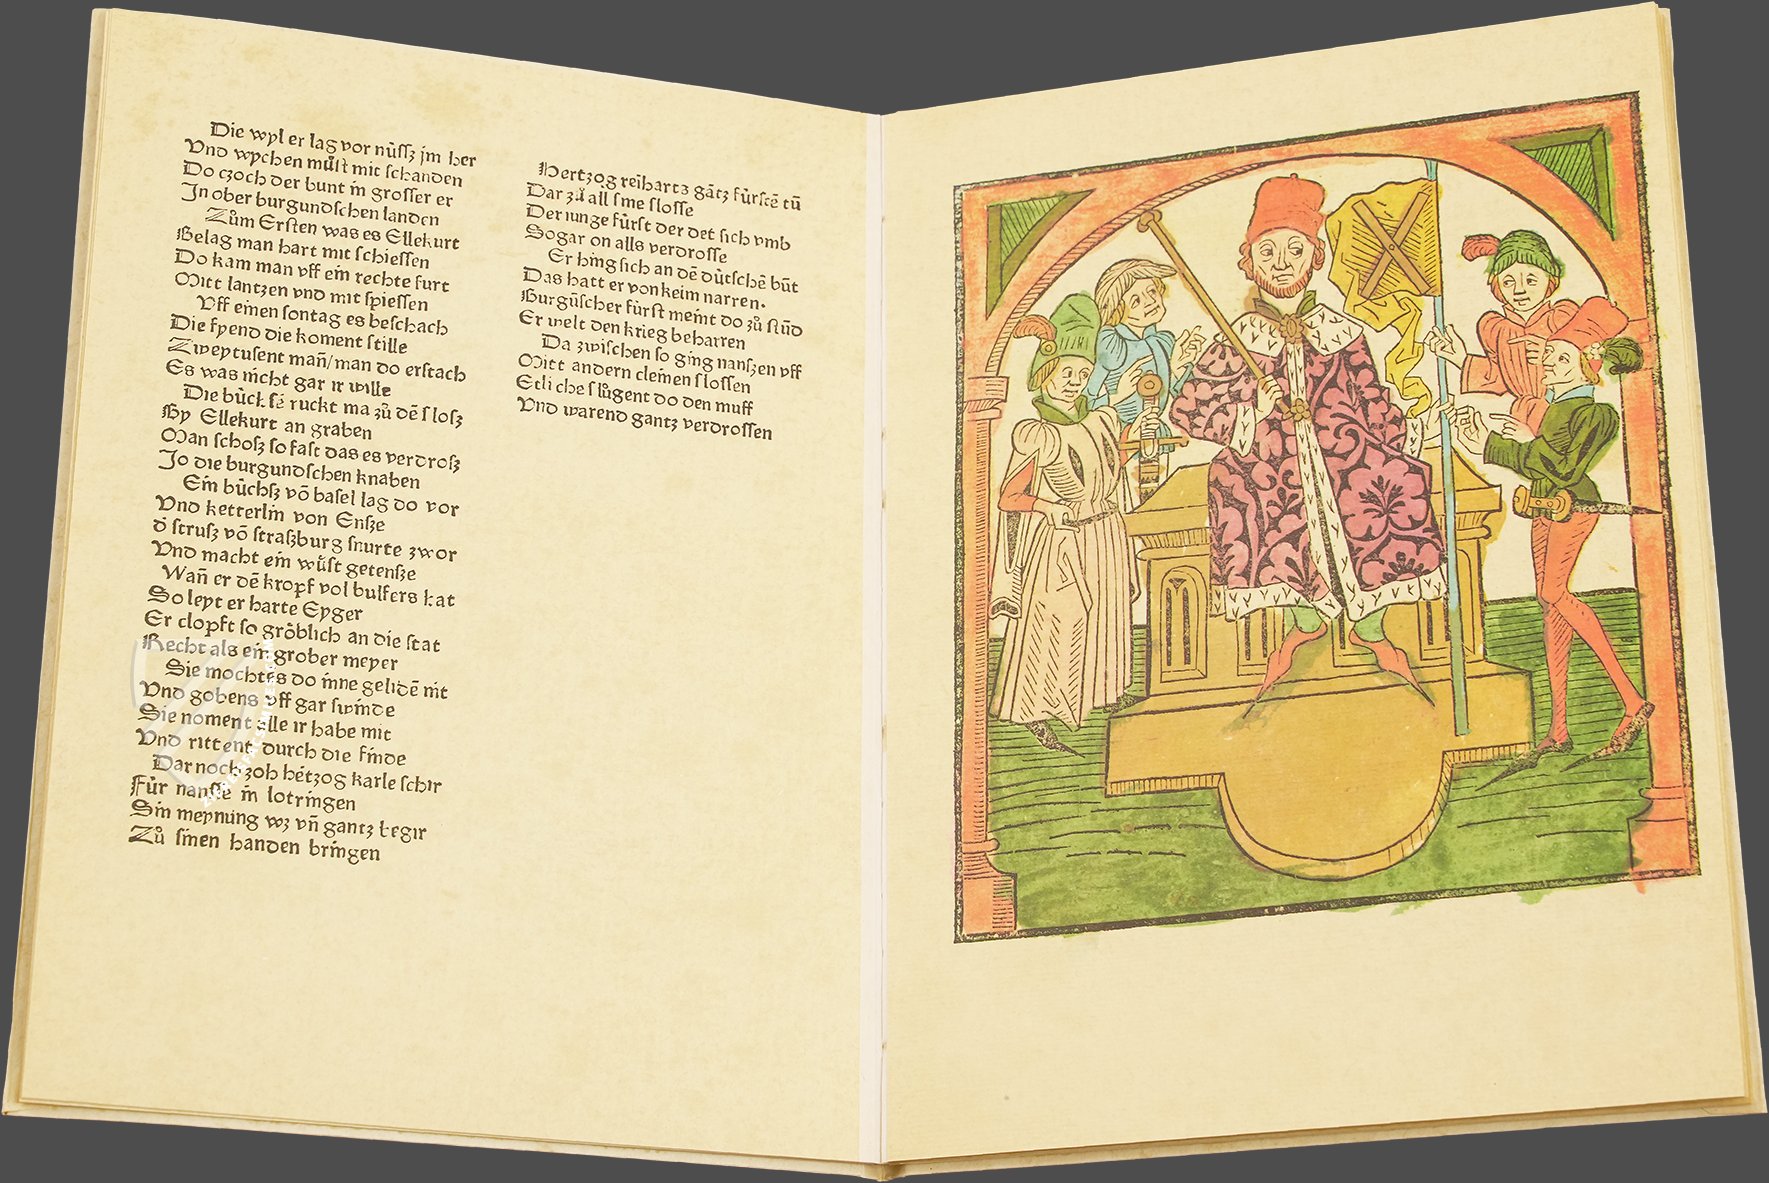 Die wyl er lag vor nůſſz jm her
Vnd wychen můſt mit ſchanden
Do czoch der bunt in groſſer er
In ober burgundſchen landen
Zům Erſten was es Ellekurt
Belag man hart mit ſchieſſen
Do kam man vff ein rechte furt
Mitt lantzen vnd mit ſpieſſen
Vff einen ſontag es beſchach
Die fyend die koment ſtille
Zweytuſent mañ/man do erſtach
Es was nicht gar ir wille
Die bückſē ruckt ma zů dē ſloſz
By Ellekurt an graben
Man ſchoſz ſo faſt das es verdroſz
Jo die burgundſchen knaben
Ein bůchſz vō baſel lag do vor
Vnd ketterlin von Enſze
d ſtruſz vō ſtraſzburg ſnurte zwor
Vnd macht ein wůſt getenſze
Wañ er dē kropf vol bulfers hat
So leyt er harte Eyger
Er clopft ſo gröblich an die ſtat
Recht als ein grober meyer
Sie mochtēs do inne gelidē nit
Vnd gobens vff gar ſwinde
Sie noment alle ir habe mit
Vnd rittent durch die finde
Dar noch zoh hétzog karle ſchir
Fůr nanſſe in lotringen
Sin meynung wz vñ gantz begir
Zů ſinen handen bringen
Hertzog reihartz gātz fůrſtē tů
Dar zů all ſine ſloſſe
Der iunge fůrſt der det ſich vmb
Sogar on alls verdroſſe
Er hing ſich an dē důtſchē bůt
Das hatt er von keim narren.
Burgůſcher fůrſt meint do zů ſtůd
Er welt den krieg beharren
Da zwiſchen ſo ging nanſzen vff
Mitt andern cleinen ſloſſen
Etliche ſlůgent do den muff
Vnd warend gantz verdroſſen